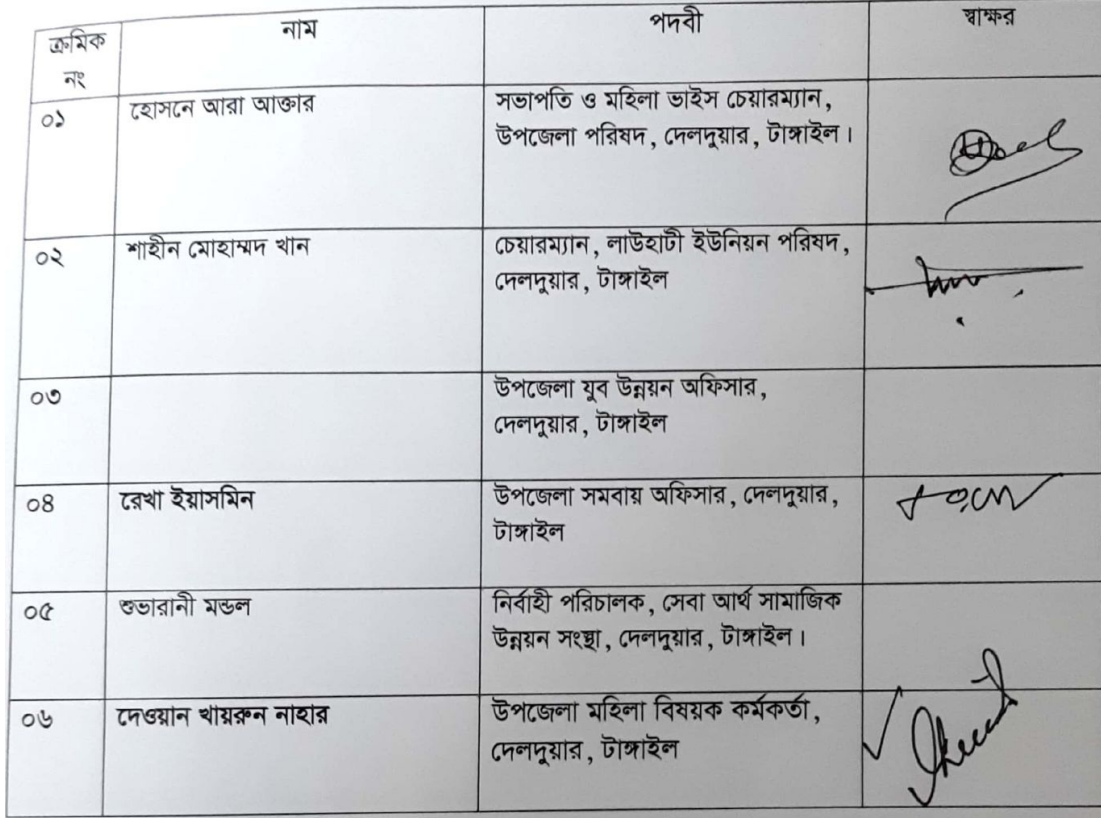 ক্রমিক নং নাম পদবী স্বাক্ষর
০১ হোসনে আরা আক্তার সভাপতি ও মহিলা ভাইস চেয়ারম্যান,
উপজেলা পরিষদ, দেলদুয়ার, টাঙ্গাইল।
০২ শাহীন মোহাম্মদ খান চেয়ারম্যান, লাউহাটী ইউনিয়ন পরিষদ,
দেলদুয়ার, টাঙ্গাইল
০৩ উপজেলা যুব উন্নয়ন অফিসার,
দেলদুয়ার, টাঙ্গাইল
০৪ রেখা ইয়াসমিন উপজেলা সমবায় অফিসার, দেলদুয়ার,
টাঙ্গাইল
০৫ শুভারানী মন্ডল নির্বাহী পরিচালক, সেবা আর্থ সামাজিক
উন্নয়ন সংস্থা, দেলদুয়ার, টাঙ্গাইল।
০৬ দেওয়ান খায়রুন নাহার উপজেলা মহিলা বিষয়ক কর্মকর্তা,
দেলদুয়ার, টাঙ্গাইল